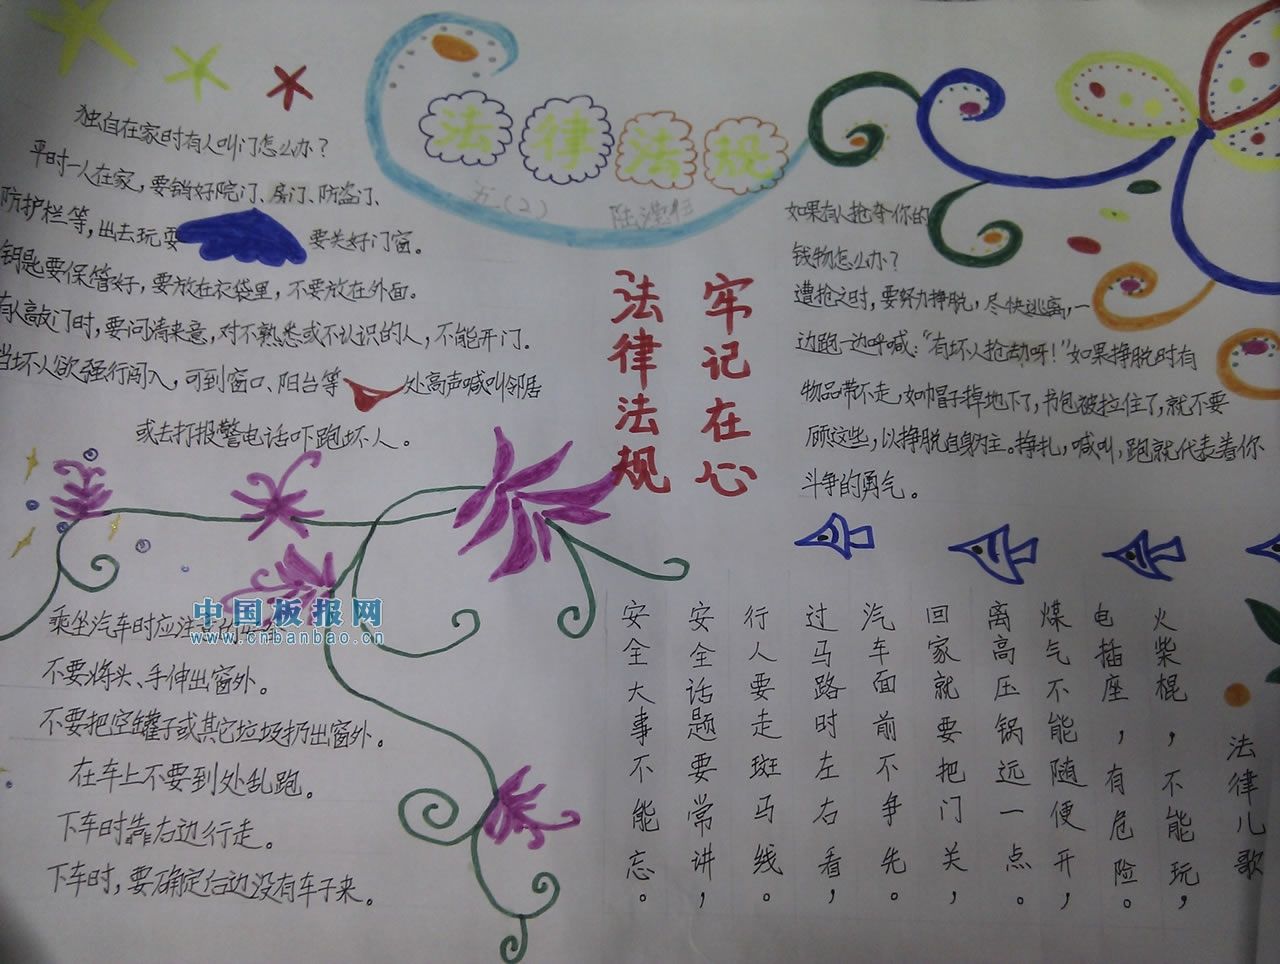 法律法规
五(2)
独自在家时有人叫门怎么办？
平时一人在家，要销好院门、房门、防盗门、
防护栏等，出去玩耍要关好门窗。
钥匙要保管好，要放在衣袋里，不要放在外面。
有人敲门时，要问清来意，对不熟悉或不认识的人，不能开门。
当坏人欲强行闯入，可到窗口、阳台等处高声喊叫邻居
或去打报警电话吓跑坏人。
牢记在心
法律法规
如果有人抢夺你的
钱物怎么办？
遭抢之时，要努力挣脱，尽快逃离，一
边跑一边呼喊："有坏人抢劫呀！"如果挣脱时有
物品带不走，如帽子掉地下了，书包被拉住了，就不要
顾这些，以挣脱自身为主。挣扎，喊叫，跑就代表着你
斗争的勇气。
中国板报网
www.cnbanbao.cn
乘坐汽车时应注
不要将头、手伸出窗外。
不要把空罐子或其它垃圾扔出窗外。
在车上不要到处乱跑。
下车时靠右边行走。
下车时，要确定右边没有车子来。
法律儿歌
火柴棍，不能玩，
电插座，有危险。
煤气不能随便开，
离高压锅远一点。
回家就要把门关，
汽车面前不争先。
过马路时左右看，
行人要走斑马线。
安全话题要常讲，
安全大事不能忘。